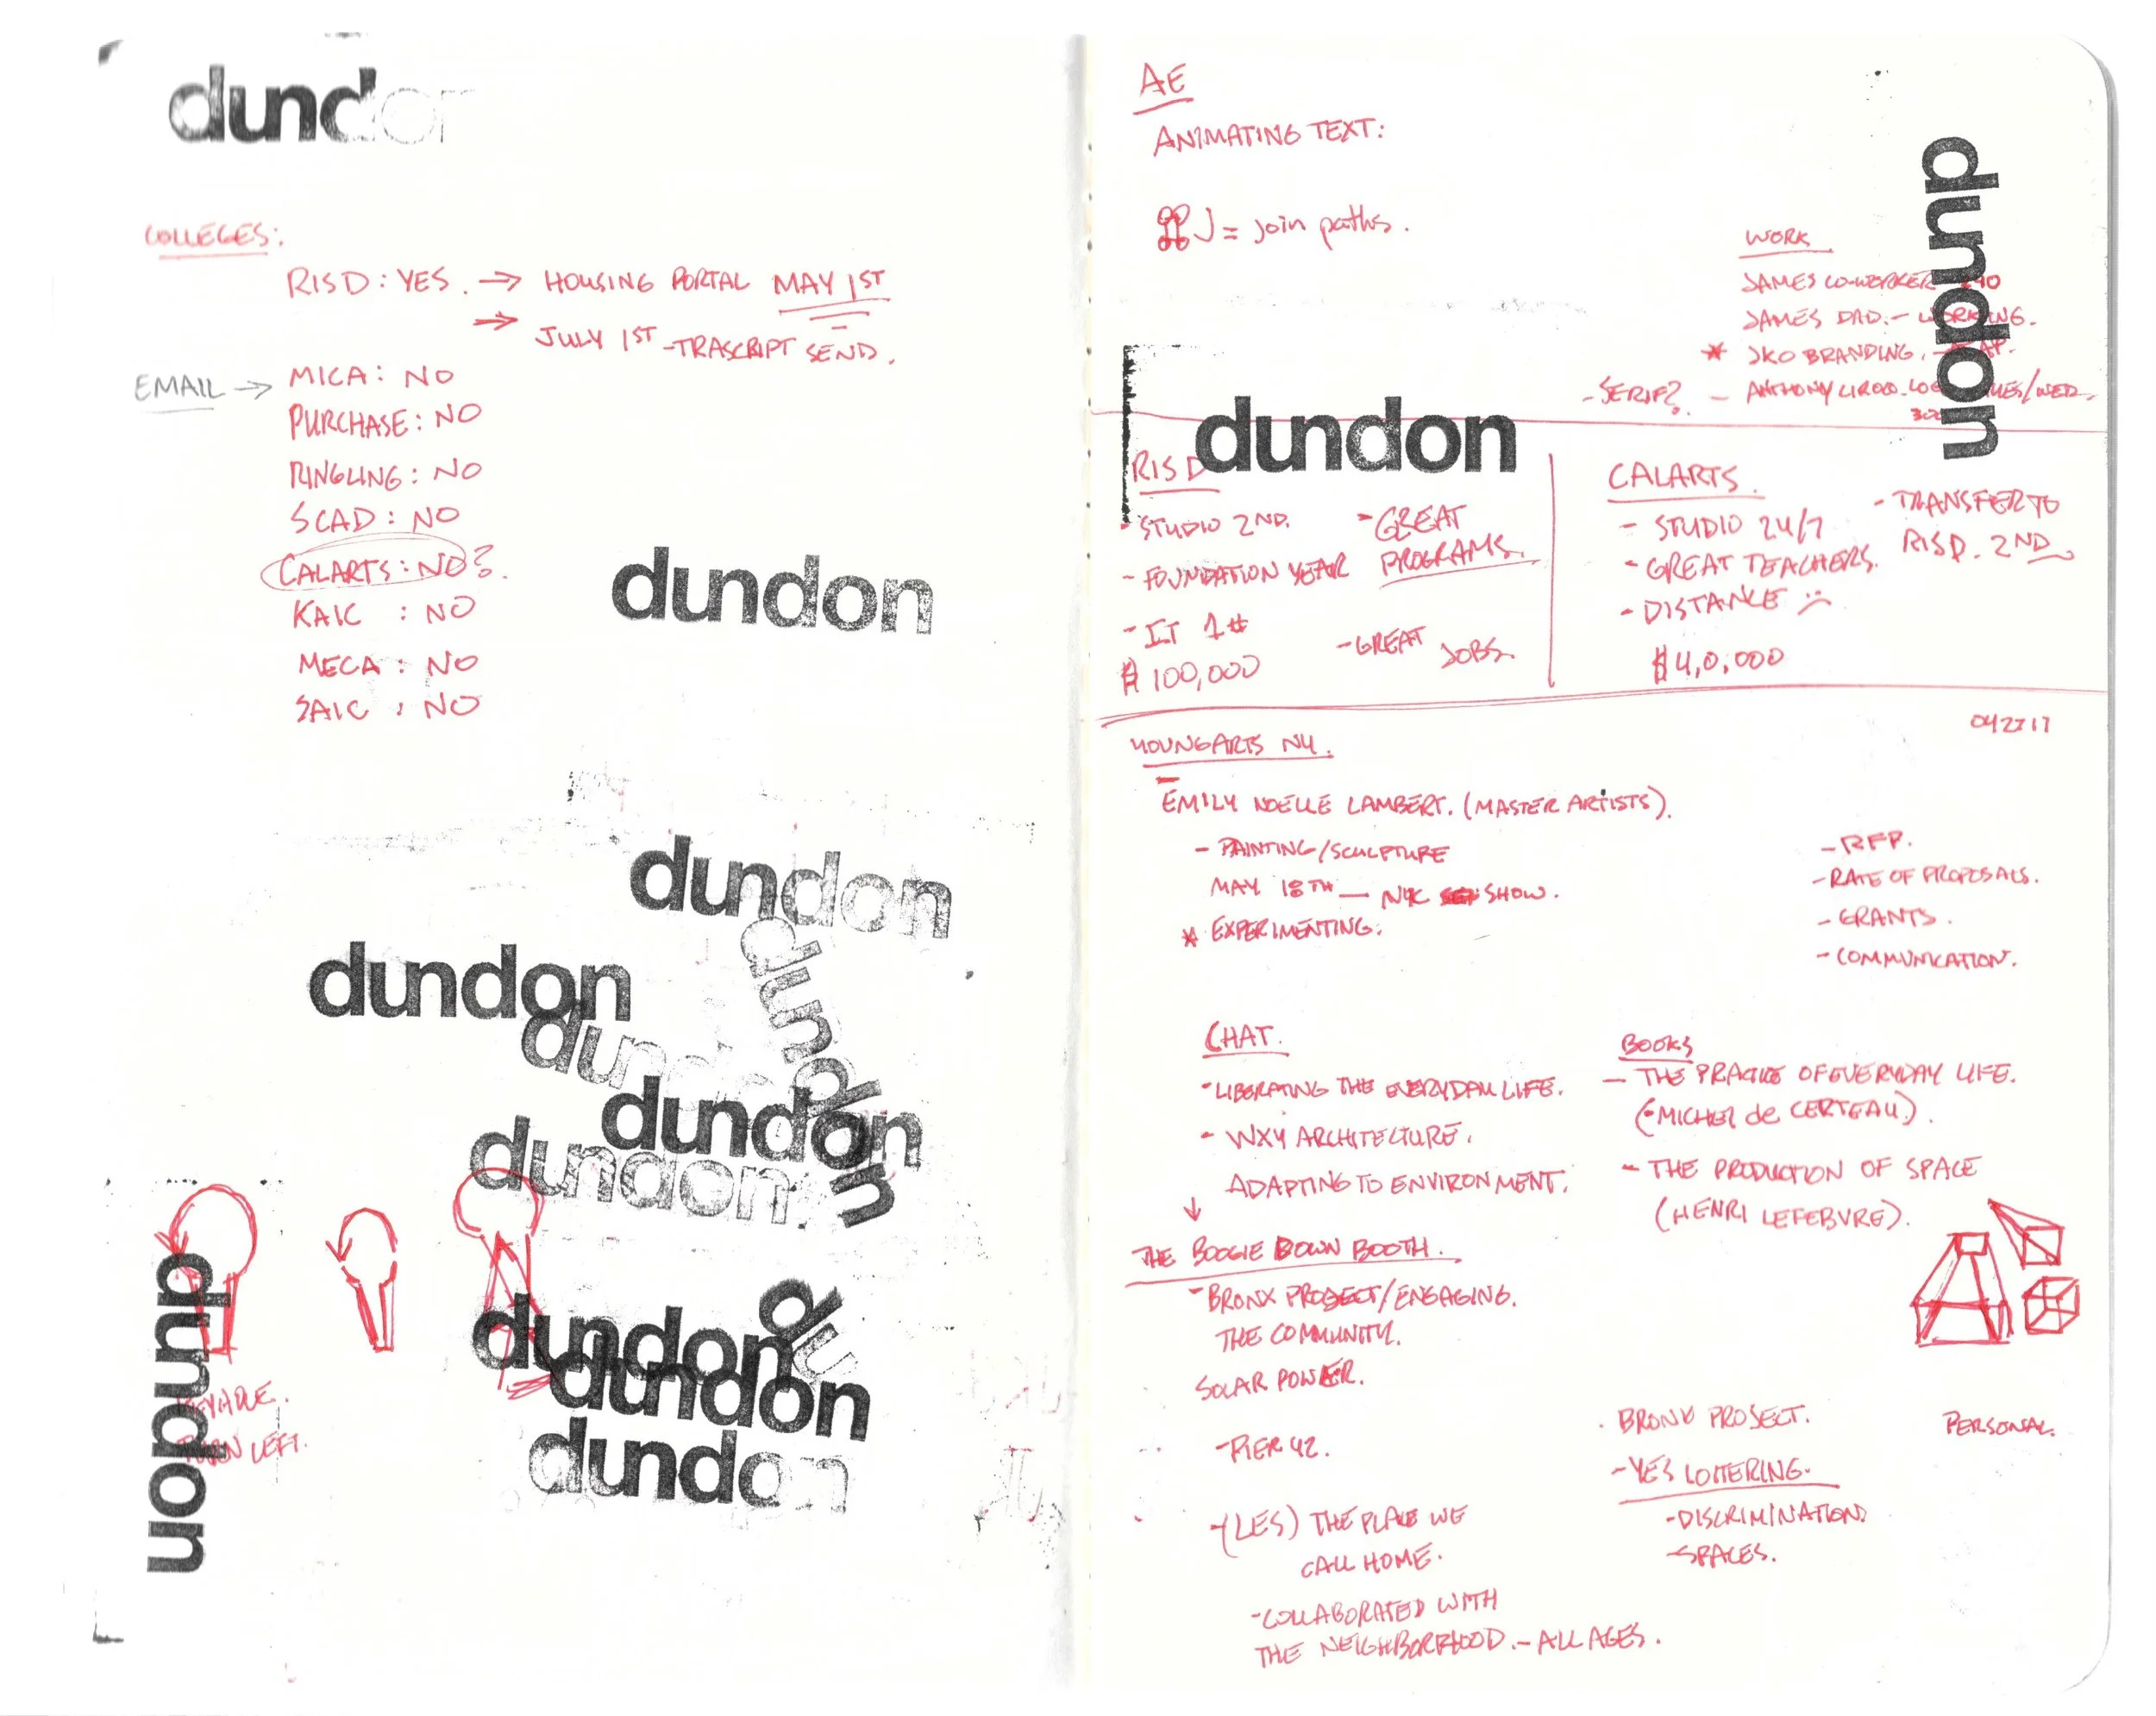 dundon
COLLEGES:
RISD: YES. → HOUSING PORTAL MAY 1ST
→ JULY 1ST - TRASCRIPT SEND.
EMAIL → MICA: NO
PURCHASE: NO
RINGLING: NO
SCAD: NO
CALARTS: NO?
KAIC : NO
MECA : NO
SAIC : NO
dundon
dundon
dundon
dundon
dun
dundon
dundon
dundon
dundon
du
dundon
dundon
TURN LEFT.
dundon
AE
ANIMATING TEXT:
⌘J = join paths.
dundon
WORK
JAMES CO-WORKER
JAMES DAD. - WORKING.
* JKO BRANDING.
- SERIF? - ANTHONY /WED.
dundon
RISD
- STUDIO 2ND.
- FOUNDATION YEAR
- IT 1#
$ 100,000
- GREAT
PROGRAMS.
- GREAT JOBS.
CALARTS.
- STUDIO 24/7
- GREAT TEACHERS.
- DISTANCE :(
$ 40,000
- TRANSFER TO
RISD. 2ND
042717
YOUNGARTS NY.
EMILY NOELLE LAMBERT. (MASTER ARTISTS).
- PAINTING/SCULPTURE
MAY 18TH — NYC SHOW.
* EXPERIMENTING.
- RFP.
- RATE OF PROPOSALS.
- GRANTS.
- COMMUNICATION.
CHAT.
- LIBERATING THE EVERYDAY LIFE.
- WXY ARCHITECTURE.
ADAPTING TO ENVIRONMENT.
↓
THE BOOGIE DOWN BOOTH.
- BRONX PROJECT/ENGAGING.
THE COMMUNITY.
SOLAR POWER.
- PIER 42.
- (LES) THE PLACE WE
CALL HOME.
- COLLABORATED WITH
THE NEIGHBORHOOD. - ALL AGES.
BOOKS
- THE PRACTICE OF EVERYDAY LIFE.
(- MICHEL de CERTEAU).
- THE PRODUCTION OF SPACE
(HENRI LEFEBVRE).
. BRONX PROJECT.
- YES LOITERING.
- DISCRIMINATION
- SPACES.
PERSONAL.